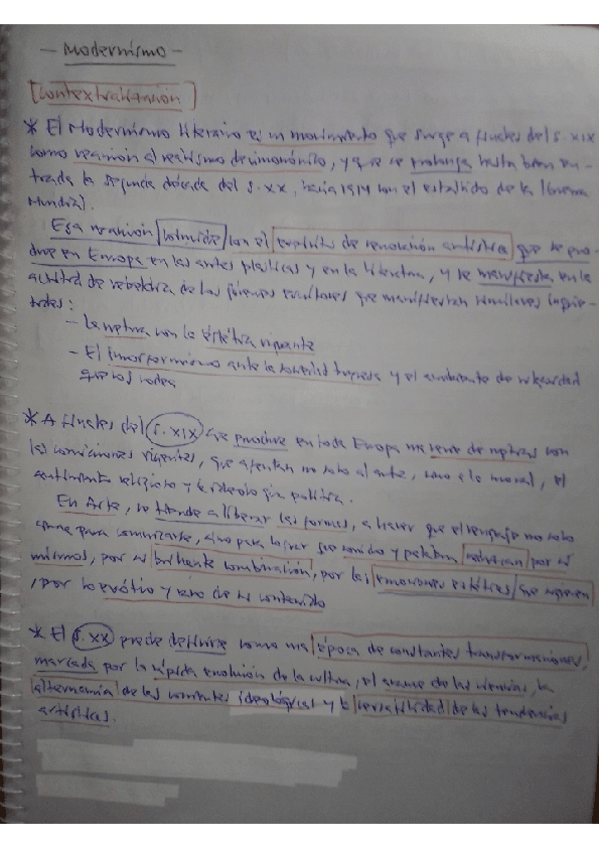 - Modernismo -
[Contextualización]
* El Modernismo literario es un movimiento que surge a finales del s. XIX
como reacción al realismo decimonónico, y que se prolonga hasta bien en-
trada la segunda década del s. XX, hacia 1914 con el estallido de la I Guerra
Mundial.
Esa reacción coincide con el espíritu de renovación artística que se pro-
duce en Europa en las artes plásticas y en la literatura, y se manifiesta en la
actitud de rebeldía de los jóvenes escritores que manifiestan similares inquie-
tudes:
- La ruptura con la estética vigente
- El inconformismo ante la sociedad burguesa y el ambiente de vulgaridad
que los rodea
* A finales del s. XIX se produce en toda Europa una serie de rupturas con
las convicciones vigentes, que afectan no solo al arte, sino a la moral, el
sentimiento religioso y la ideología política.
En Arte, se tiende a liberar las formas, a hacer que el lenguaje no solo
sirva para comunicarse, sino para lograr que sonido y palabra seduzcan por sí
mismos, por su brillante combinación, por las emociones estéticas que sugieren
, por lo exótico y raro de su contenido
* El s. XX puede definirse como una época de constantes transformaciones,
marcada por la rápida evolución de la cultura, el avance de las ciencias, la
alternancia de las corrientes ideológicas y la versatilidad de las tendencias
artísticas.